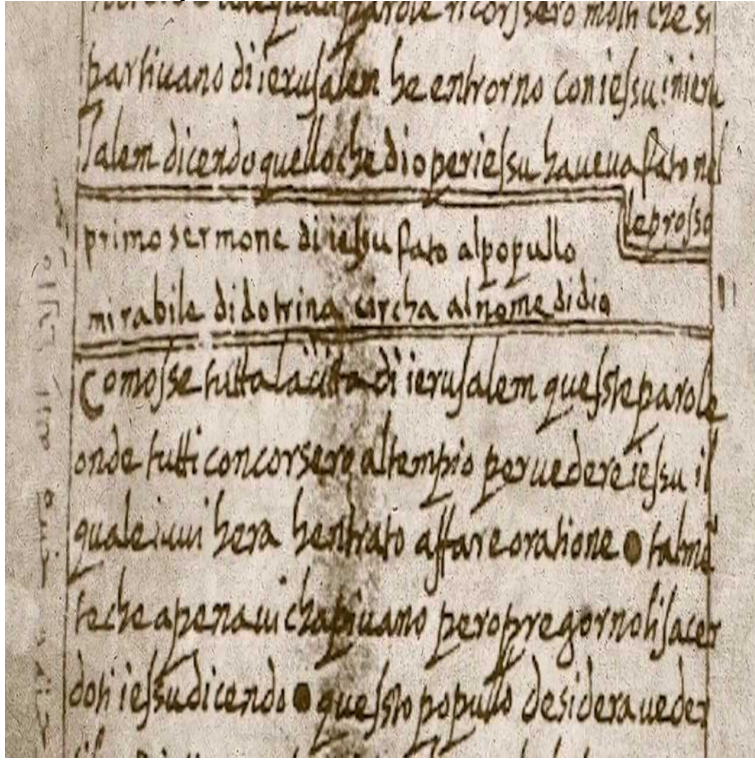 parole ricorssero molti che si
partiuano di ierusalem he entrorno con iessu in ieru
salem dicendo quello che dio per iessu haueua fato nel
leprosso
primo sermone di iessu fato al popullo
mirabile di dotrina circha al nome di dio
Comosse tutta la citta di ierusalem queste parole
onde tutti concorsero al tempio per uedere iessu il
quale iuui hera hentrato affare oratione ● talmē
te che apena ui chapiuano pero pregorno li sacer
doti iessu dicendo ● questo popullo desidera ueder